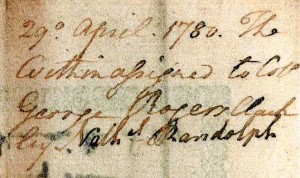 29º April 1780. The
within assigned to Colº
George Rogers Clark
by Nathl Randolph